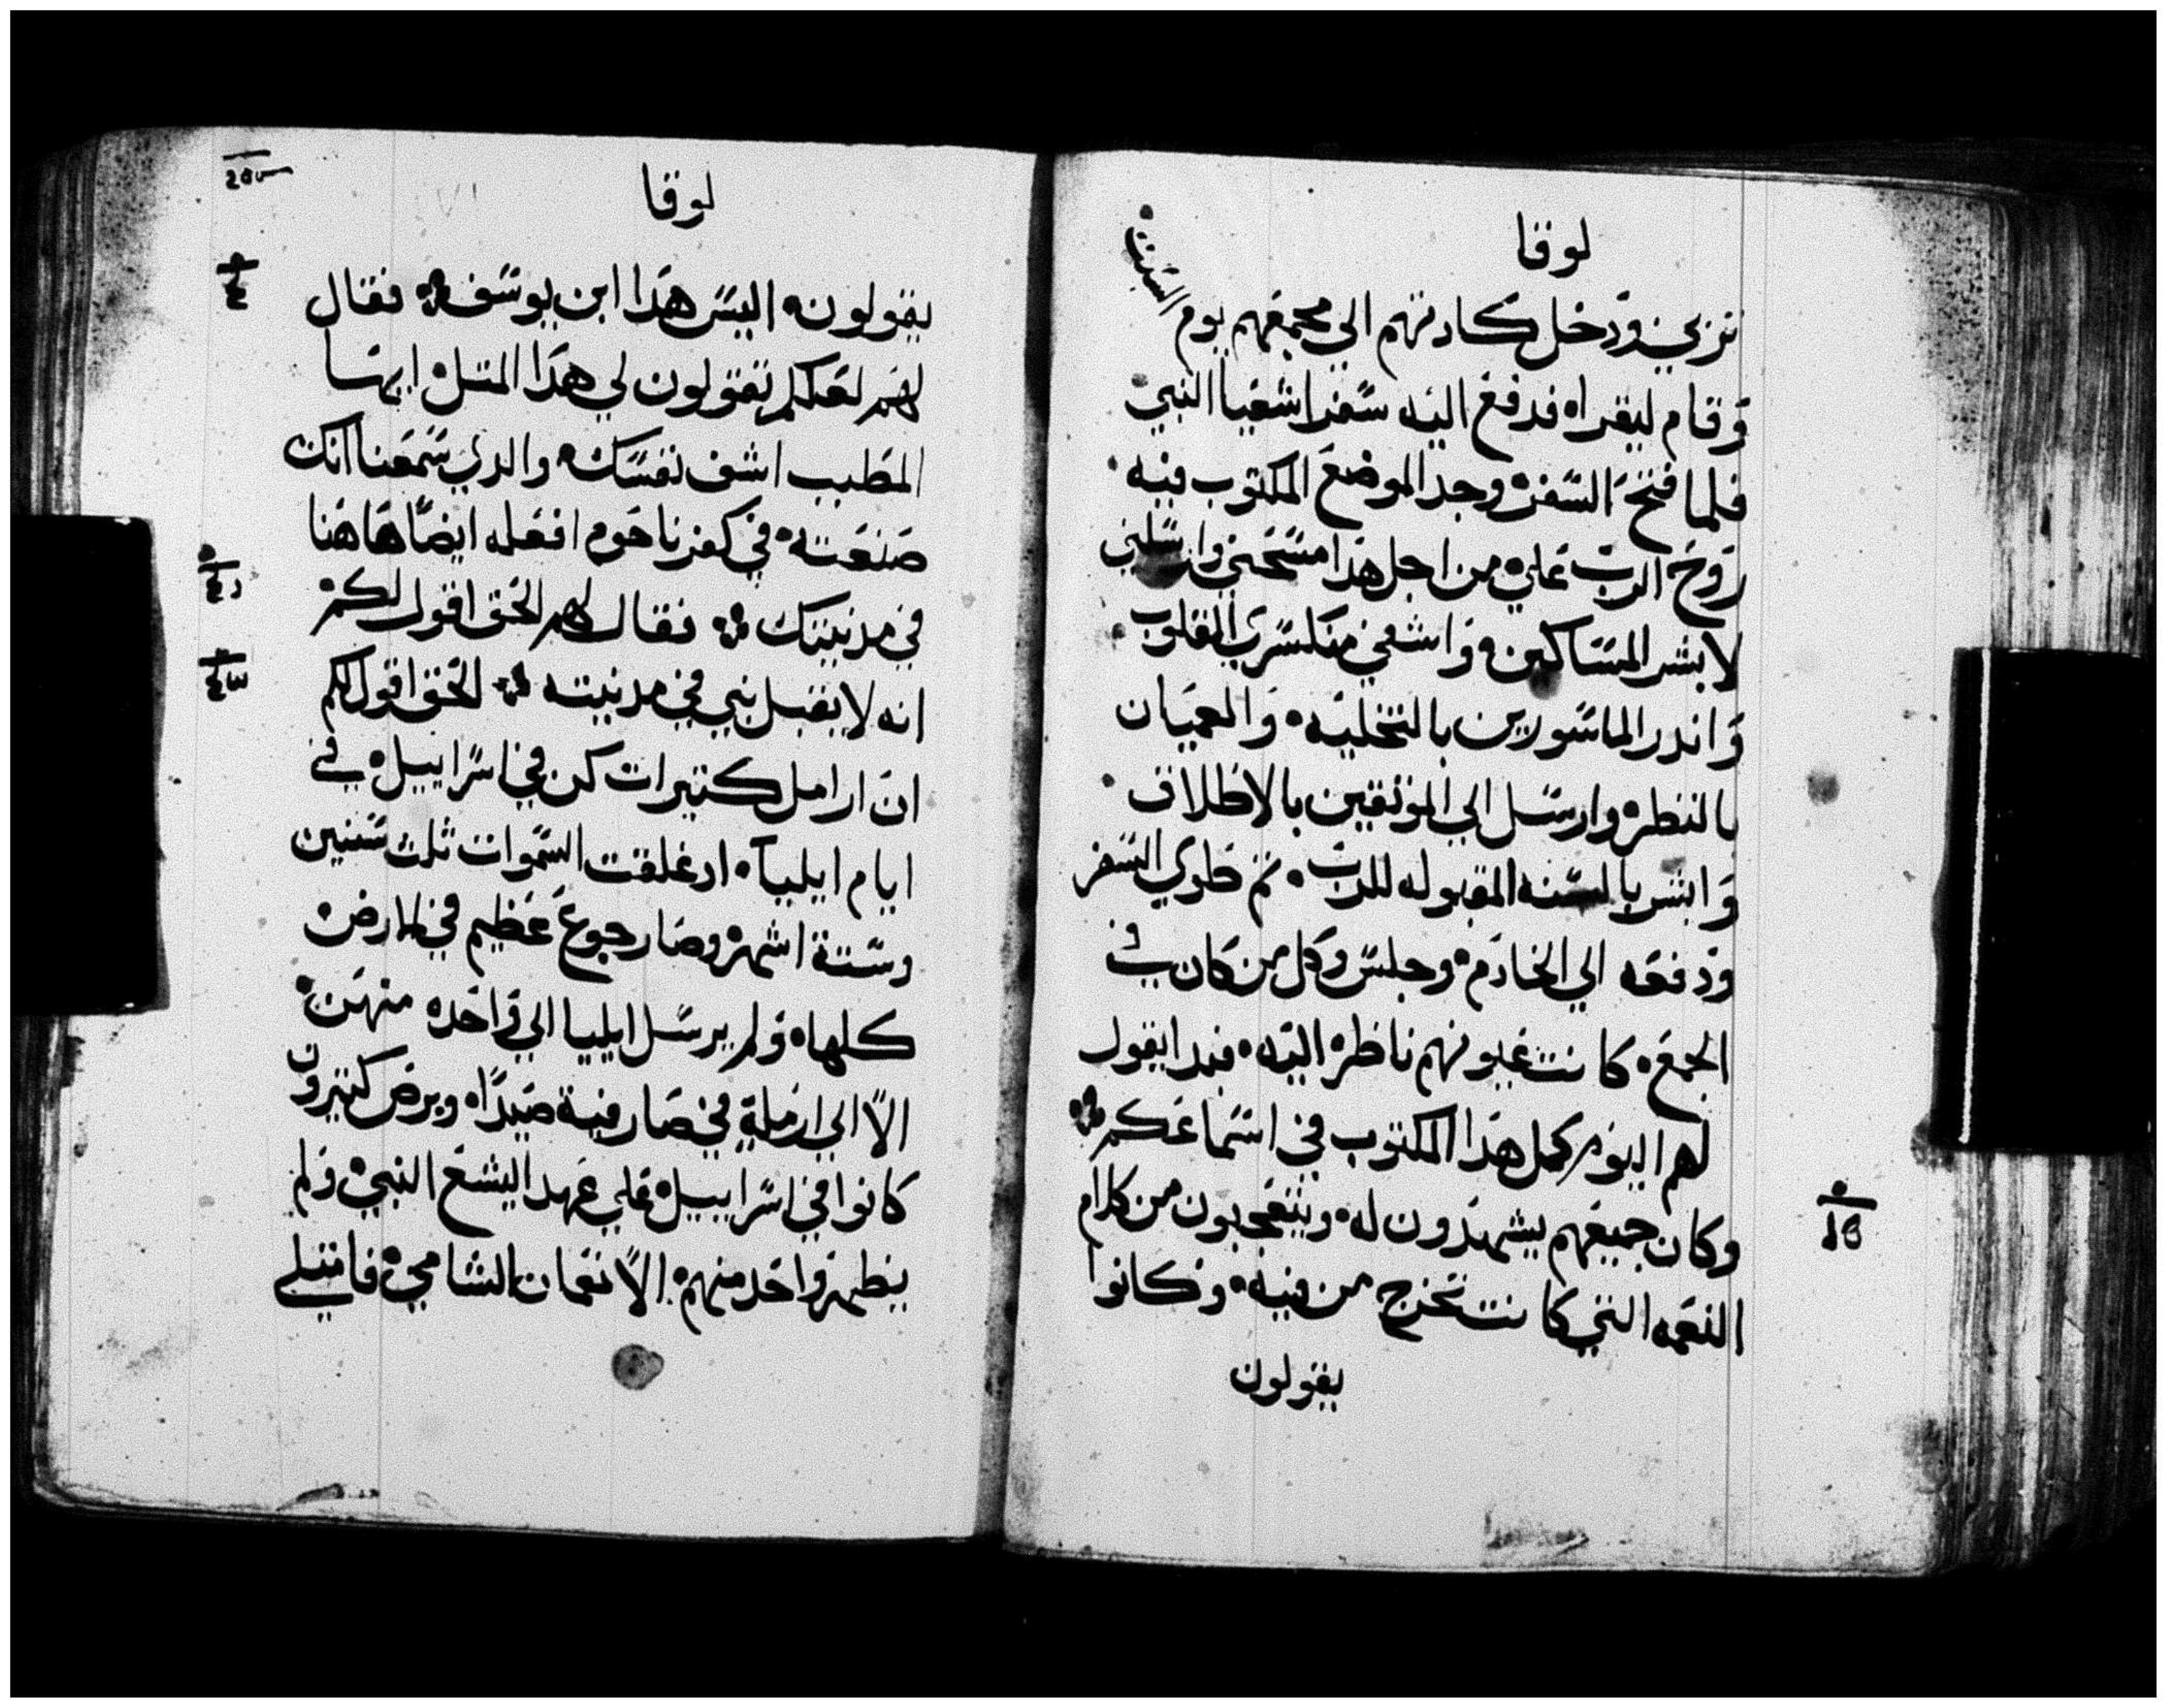 لوقا
تربي ودخل كعادتهم الي مجمعهم يوم السبت
وقام ليقراه فدفع اليه سفر اشعيا النبي
فلما فتح السفر وجد الموضع المكتوب فيه
روح الرب علي من اجل هدا مسحني وارسلني
لابشر المساكين واشفي منكسري القلوب
واندر الماسورين بالتخليه والعميان
بالنظر وارسل الي الموثقين بالاطلاق
وابشر بالسنه المقبوله للرب ثم طوي السفر
ودفعه الي الخادم وجلس وكل من كان في
الجمع كانت عيونهم ناظره اليه فبدا يقول
لهم اليوم كمل هدا المكتوب في اسماعكم
وكان جميعهم يشهدون له ويتعجبون من كلام
النعمه التي كانت تخرج من فيه وكانوا
يقولون
لوقا
يقولون اليس هدا ابن يوسف فقال
لهم لعلكم تقولون لي هدا المتل ايها
المطبب اشف نفسك والدي سمعنا انك
صنعته في كفرناحوم افعله ايضا هاهنا
في مدينتك فقال لهم الحق اقول لكم
انه لا يقبل نبي في مدينته الحق اقول لكم
ان ارامل كتيرات كن في اسراييل في
ايام ايليا اد غلقت السموات ثلث سنين
وستة اشهر وصار جوع عظيم في الارض
كلها ولم يرسل ايليا الي واحده منهن
الا الي ارملة في صارفية صيدا وبرص كتيرون
كانوا في اسراييل علي عهد اليشع النبي ولم
يطهر واحد منهم الا نعمان الشامي فامتلي